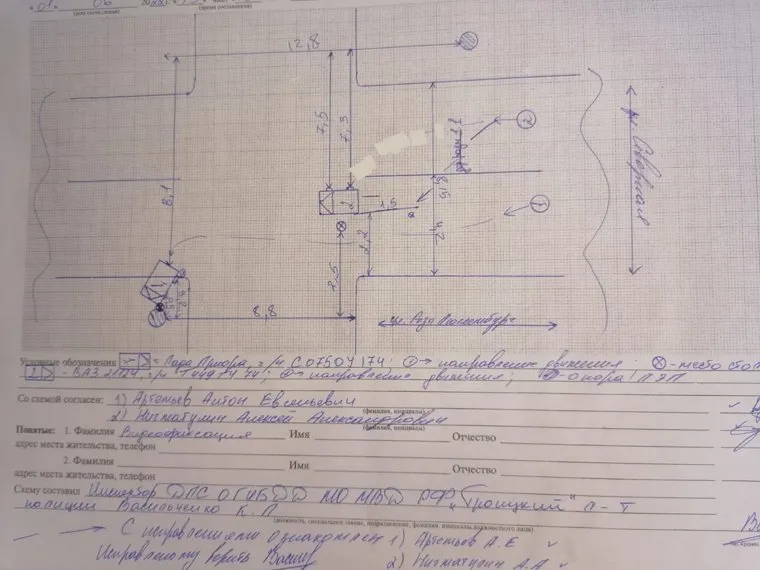 "01" 06
(дата составления)
(время составления)
12,8
7,5
7,3
8,1
2
1,5
2,2
2,5
8,8
1
2
1
ул. Северная
ул. Розы Люксембург
Условные обозначения 1 = Лада Приора, г/н С075ОУ174; 1 → направление движения ⊗ - место стол
2 - ВАЗ направление движения; - опора ЛЭП
Со схемой согласен: 1) Артемьев Антон Евгеньевич
(фамилия, инициалы)
2) Нигматулин Алексей Александрович
(фамилия, инициалы)
Понятые: 1. Фамилия Видеофиксация Имя Отчество
адрес места жительства, телефон
2. Фамилия Имя Отчество
адрес места жительства, телефон
Схему составил Инспектор ДПС ОГИБДД МО МВД РФ "Троицкий" л-т
полиции К.П
(должность, специальное звание, подразделение, фамилия, инициалы должностного лица)
С исправлениями ознакомлен 1) Артемьев А.Е
Исправленному верить 2) Нигматулин А.А